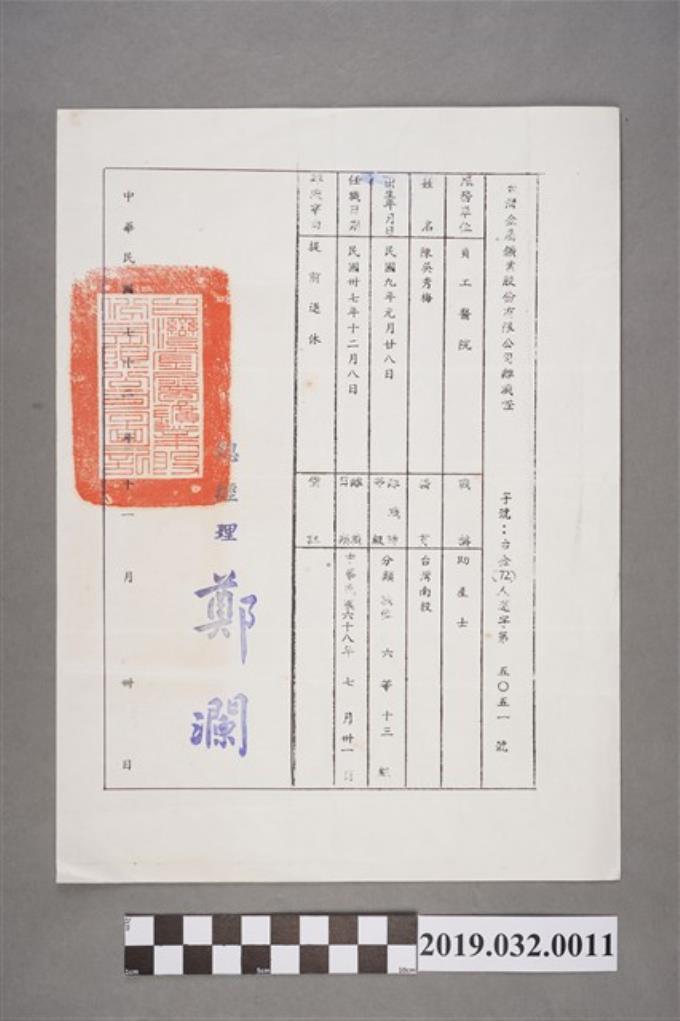 台灣金屬鑛業股份有限公司離職證 字號：台金(72)人通字第 五〇五一 號
服務單位 員工醫院 職稱 助產士
姓名 陳吳秀梅 籍貫 台灣南投
出生年月日 民國九年元月廿八日 離職時等級 分類職位 六等十三級
任職日期 民國卅七年十二月八日 離職日期 中華民國六十八年七月卅一日
離職事由 提前退休 備註
總經理 鄭瀾
中華民國七十二年十一月卅日
2019.032.0011
0cm
5cm
10cm